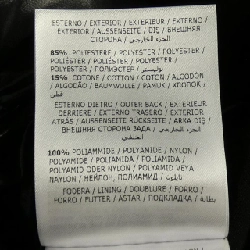 ESTERNO / EXTERIOR / EXTÉRIEUR / EXTERNO
/ EXTERIOR / AUSSENSEITE / DIŞ / ВНЕШНЯЯ
СТОРОНА / الجزء الخارجي
85% POLIESTERE / POLYESTER / POLYESTER
/ POLIÉSTER / POLIÉSTER / POLYESTER /
POLYESTER / ПОЛИЭСТЕР / بوليستر
15% COTONE / COTTON / COTON / ALGODÓN
/ ALGODÃO / BAUMWOLLE / PAMUK / ХЛОПОК /
قطن
ESTERNO DIETRO / OUTER BACK / EXTÉRIEUR
DERRIÈRE / EXTERNO TRASERO / EXTERIOR
ATRÁS / AUSSENSEITE RÜCKSEITE / ARKA DIŞ /
ВНЕШНЯЯ СТОРОНА ЗАДА / الجزء الخارجي
الخلفي
100% POLIAMMIDE / POLYAMIDE / NYLON /
POLYAMIDE / POLIAMIDA / POLIAMIDA /
POLYAMID ODER NYLON / POLYAMID VEYA
NAYLON / НЕЙЛОН, ПОЛИАМИД /
FODERA / LINING / DOUBLURE / FORRO /
FORRO / FUTTER / ASTAR / ПОДКЛАДКА / بطانة